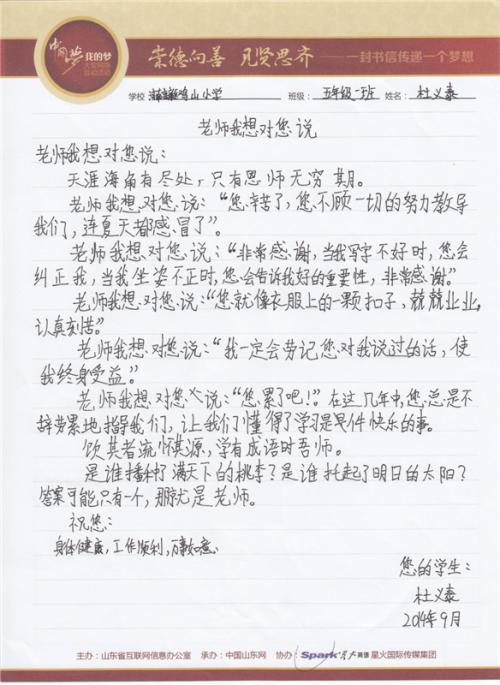 中国梦 我的梦
大型网络
互动活动
崇德向善 见贤思齐 —— 一封书信传递一个梦想
学校 山小学 班级：五年级一班 姓名：杜义泰
老师我想对您说
老师我想对您说：
天涯海角有尽处，只有恩师无穷期。
老师我想对您说：“您辛苦了，您不顾一切的努力教导
我们，连夏天都感冒了”。
老师我想对您说：“非常感谢，当我写字不好时，您会
纠正我，当我坐姿不正时，您会告诉我好的重要性，非常感谢。”
老师我想对您说：“您就像衣服上的一颗扣子，兢兢业业，
认真刻苦。”
老师我想对您说：“我一定会劳记您对我说过的话，使
我终身受益。”
老师我想对您说：“您累了吧！”在这几年中，您总是不
辞劳累地指导我们，让我们懂得了学习是件快乐的事。
饮其者流怀其源，学有成语时吾师。
是谁播种了满天下的桃李？是谁托起了明日的太阳？
答案可能只有一个，那就是老师。
祝您：
身体健康，工作顺利，万事如意。
您的学生：
杜义泰
2014年9月
主办：山东省互联网信息办公室 承办：中国山东网 协办：Spark 星火英语 星火国际传媒集团